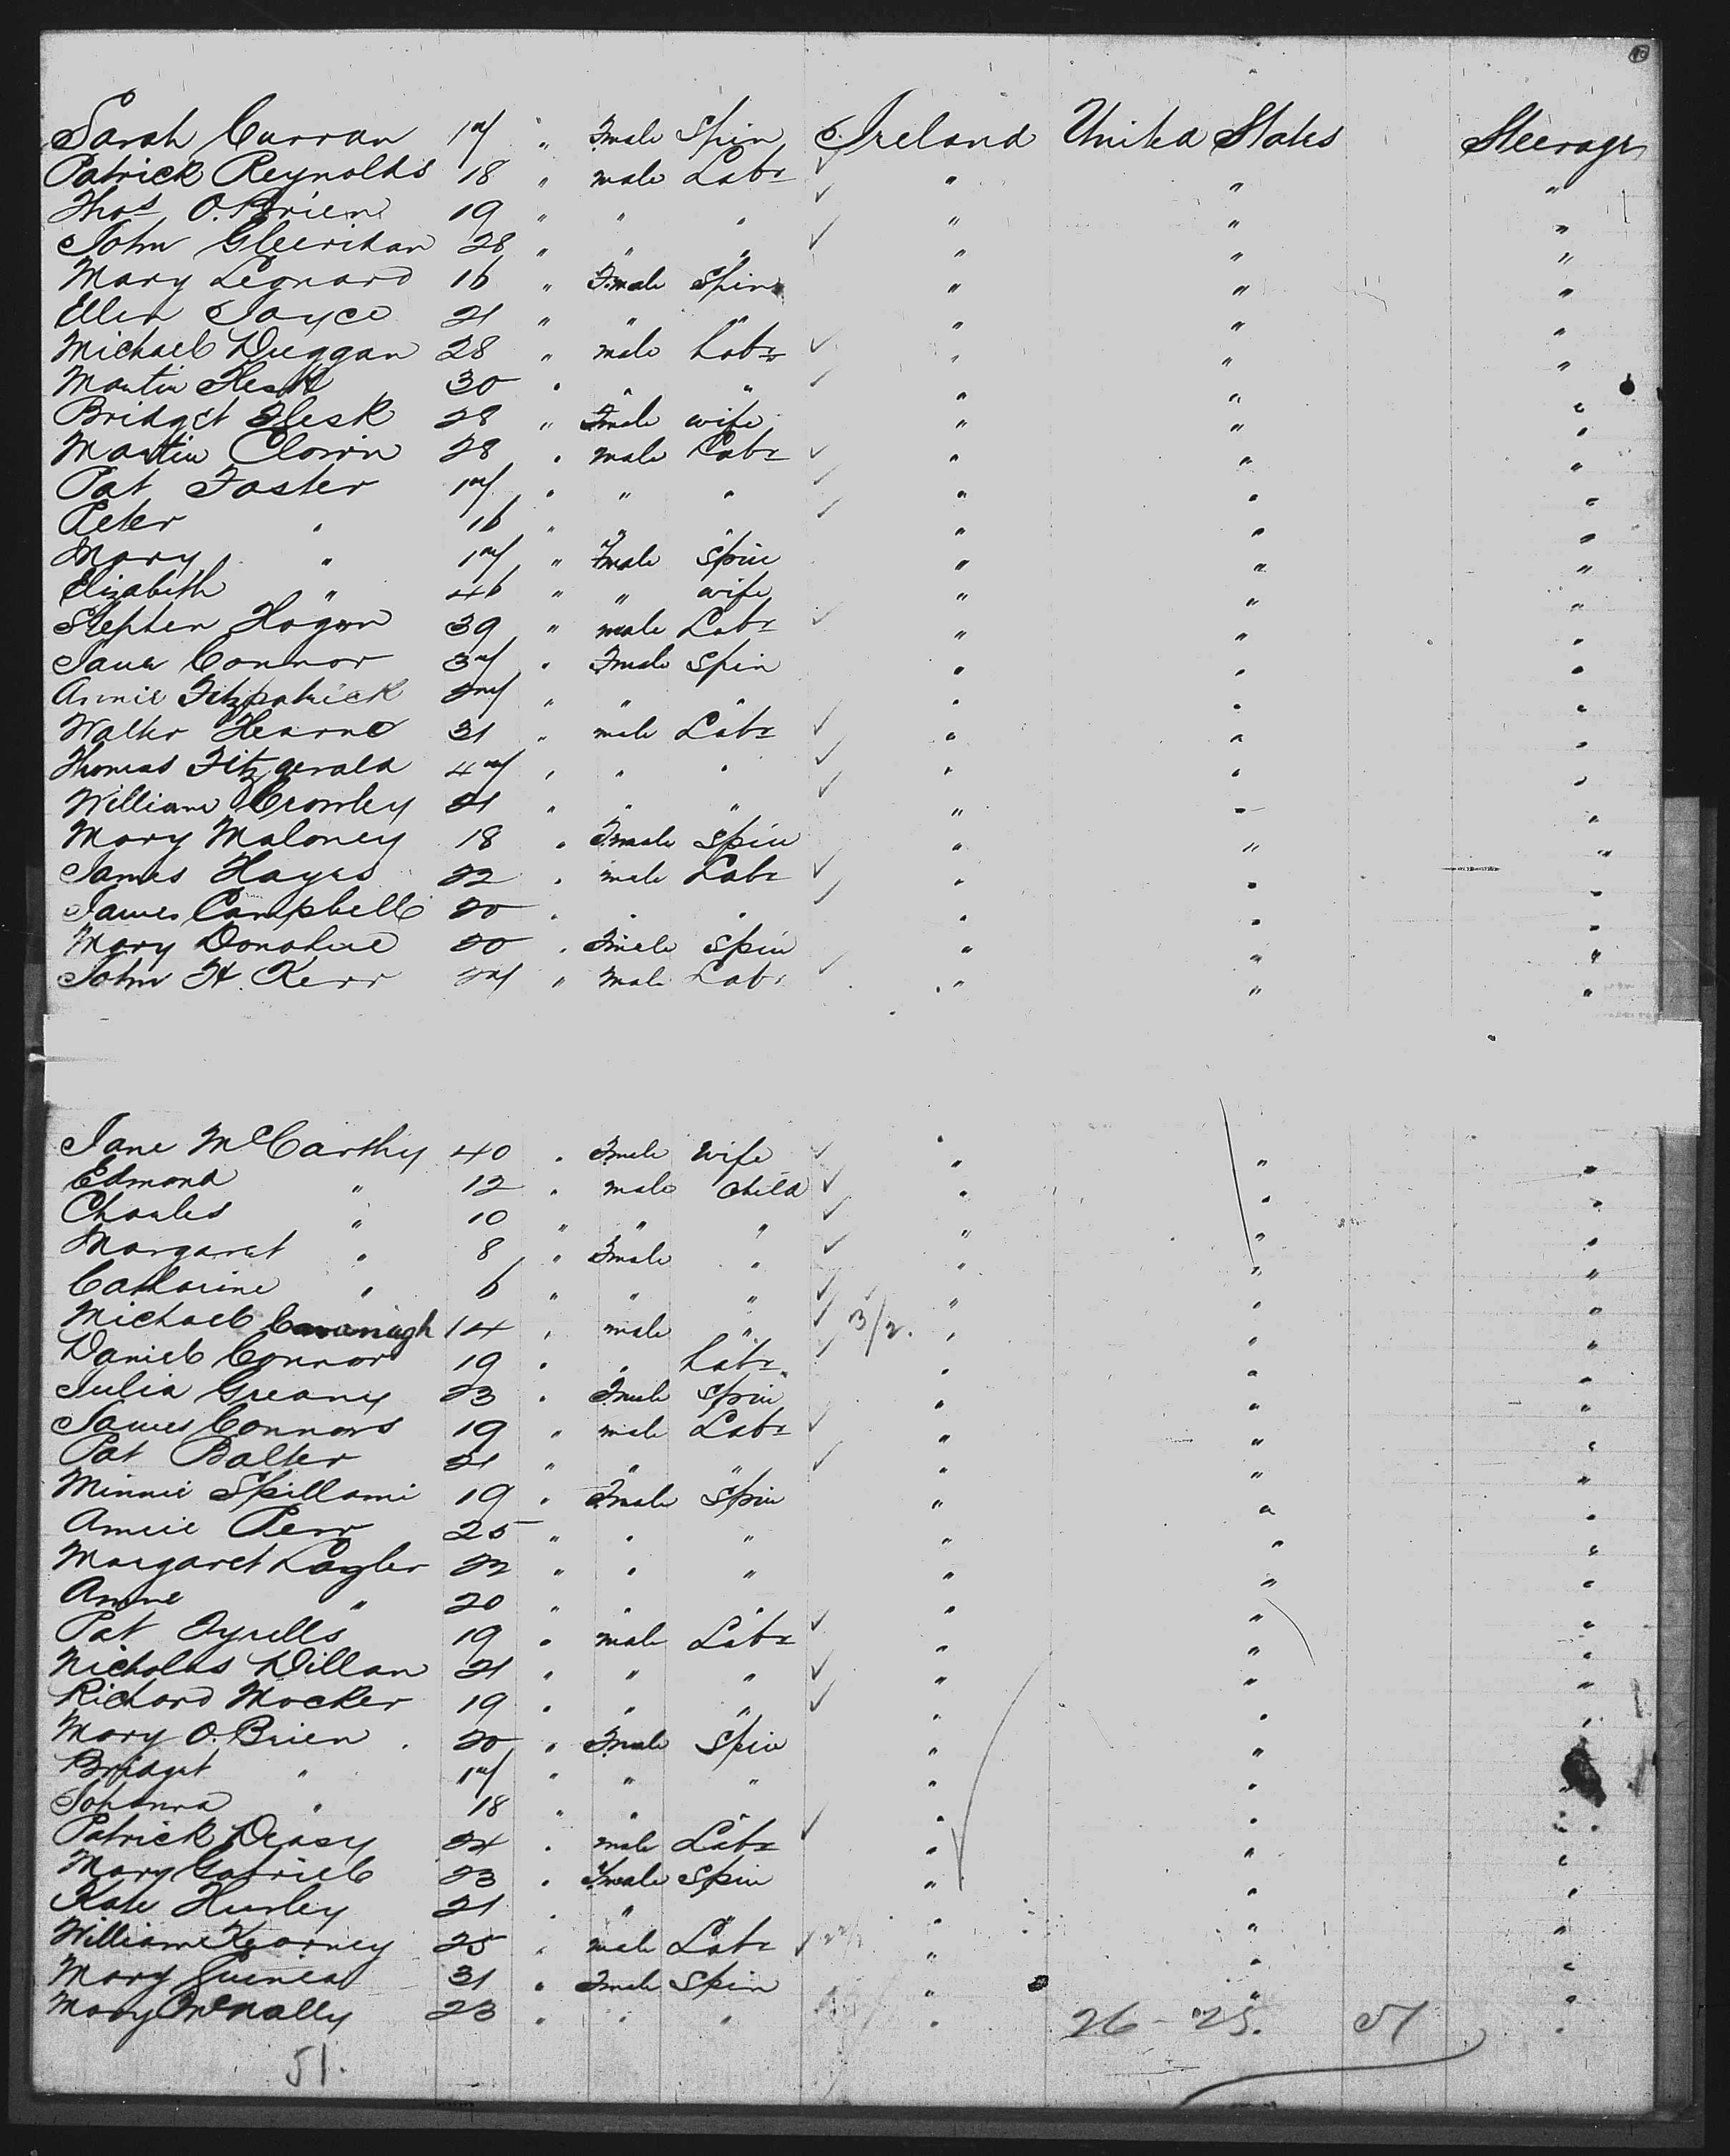 Sarah Curran 17 " Fmale Spin Ireland United States Steerage
Patrick Reynolds 18 " male Labr " " "
Thos O.Brien 19 " " " " " "
John Gleeridan 28 " " " " " "
Mary Leonard 16 " Fmale Spin " " "
Ellen Joyce 21 " " " " " "
Michael Duggan 28 " male Labr " " "
Martin Flesk 30 " " " " " "
Bridget Flesk 28 " Fmale wife " " "
Martin 28 " male Labr " " "
Pat Foster 17 " " " " " "
Peter " 16 " " " " " "
Mary " 17 " Fmale Spin " " "
Elizabeth " 46 " " wife " " "
Stephen Hogan 39 " male Labr " " "
Jane Connor 37 " Fmale Spin " " "
Annie Fitzpatrick 27 " " " " " "
Walter Hearne 31 " male Labr " " "
Thomas Fitzgerald 47 " " " " " "
William Crowley 21 " " " " " "
Mary Maloney 18 " Fmale Spin " " "
James Hayes 22 " male Labr " " "
James Campbell 20 " " " " " "
Mary Donohue 20 " Fmale Spin " " "
John H. Kerr 27 " Male Labr " " "
Jane McCarthy 40 " Fmale Wife " " "
Edmond " 12 " male child " " "
Charles " 10 " " " " " "
Margaret " 8 " Fmale " " " "
Catharine " 6 " " " " " "
Michael Cavanagh 14 " male " 3/2. " " "
Daniel Connor 19 " " Labr " " "
Julia Greany 23 " Fmale Spin " " "
James Connors 19 " male Labr " " "
Pat Balter 21 " " " " " "
Minnie Spillami 19 " Fmale Spin " " "
Annie 25 " " " " " "
Margaret 22 " " " " " "
Annie " 20 " " " " " "
Pat Tyrells 19 " male Labr " " "
Nicholas Dillan 21 " " " " " "
Richard Mocker 19 " " " " " "
Mary O.Brien 20 " Fmale Spin " " "
Bridget " 17 " " " " " "
Johanna " 18 " " " " " "
Patrick Deasy 24 " male Labr " " "
Mary Gabriel 23 " Fmale Spin " " "
Kate Hurley 21 " " " " " "
William Kearney 25 " male Labr " " "
Mary Guinea 31 " Fmale Spin " " "
Mary McNally 23 " " " " "
26 - 25. 51
51.